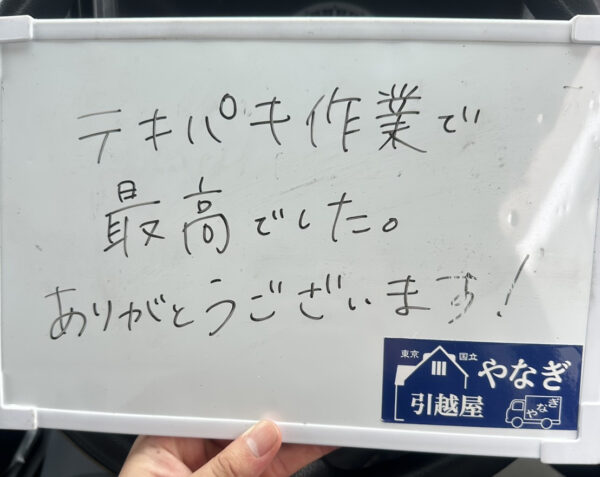 テキパキ作業で
最高でした。
ありがとうございます!
東京 国立 やなぎ
引越屋
やなぎ